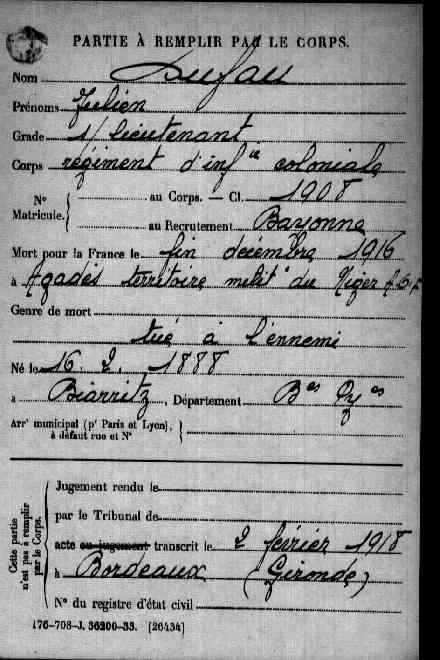 PARTIE À REMPLIR PAR LE CORPS.
Nom Dufau
Prénoms Julien
Grade s/ lieutenant
Corps régiment d'inf ie coloniale
N° Matricule. { au Corps. — Cl. 1908
au Recrutement Bayonne
Mort pour la France le fin décembre 1916
à Agadès territoire milit re du Niger A.O.F
Genre de mort
tué à l'ennemi
Né le 16. 2. 1888
à Biarritz, Département Bses Pyes
Arrt municipal (pr Paris et Lyon), à défaut rue et N° }
Cette partie n'est pas à remplir par le Corps.
Jugement rendu le
par le Tribunal de
acte ou jugement transcrit le 2 février 1918
à Bordeaux (Gironde)
N° du registre d'état civil
176-708-J. 36200-33. [26434]